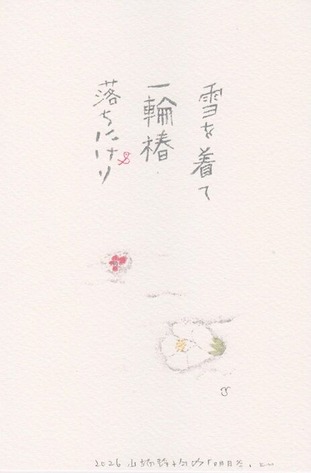 雪を着て
一輪椿
落ちにけり
2026